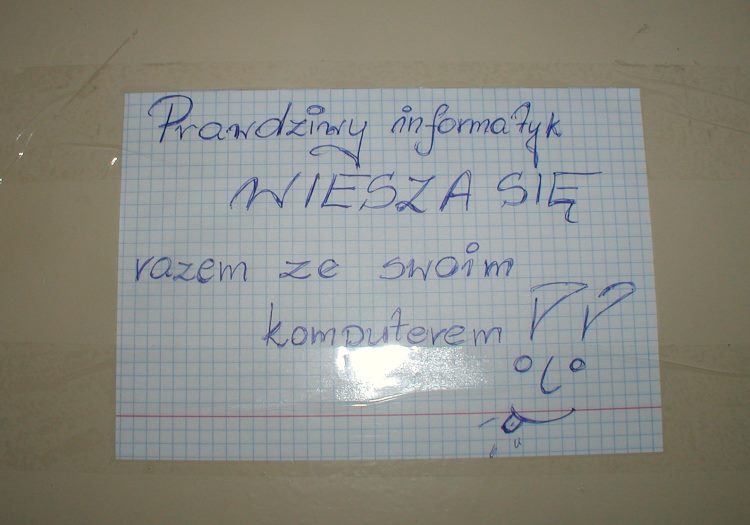 Prawdziwy informatyk
WIESZA SIĘ
razem ze swoim
komputerem !!